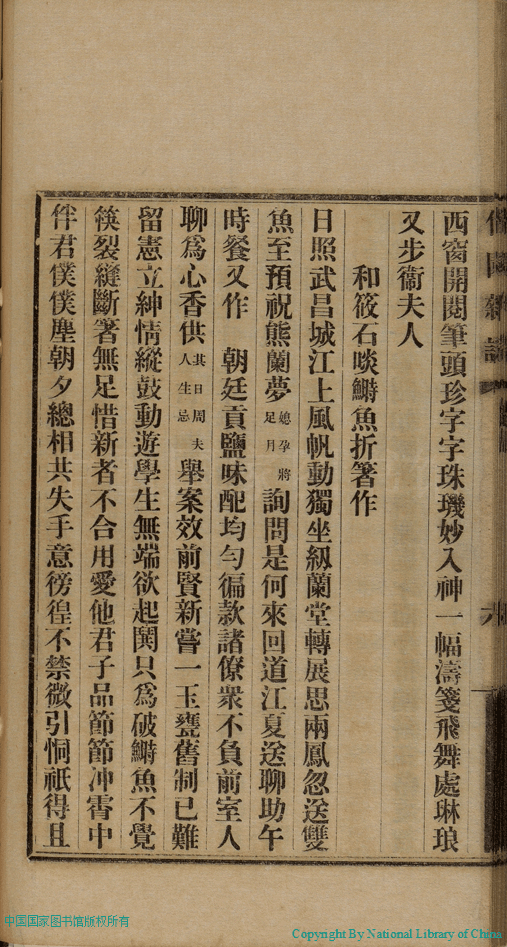 西窗開閱筆頭珍字字珠璣妙入神一幅濤箋飛舞處琳琅
又步衞夫人
和筱石啖鰣魚折箸作
日照武昌城江上風帆動獨坐紉蘭堂轉展思兩鳳忽送雙
魚至預祝熊蘭夢媳孕將足月詢問是何來回道江夏送聊助午
時餐又作　朝廷貢鹽味配均勻徧款諸僚衆不負前室人
聊爲心香供其日周夫人生忌舉案效前賢新嘗一玉甕舊制已難
留憲立紳情縱鼓動遊學生無端欲起鬨只爲破鰣魚不覺
筷裂縫斷箸無足惜新者不合用愛他君子品節節冲霄中
伴君僕僕塵朝夕總相共失手意徬徨不禁微引恫祇得且
中国国家图书馆版权所有
Copyright By National Library of China